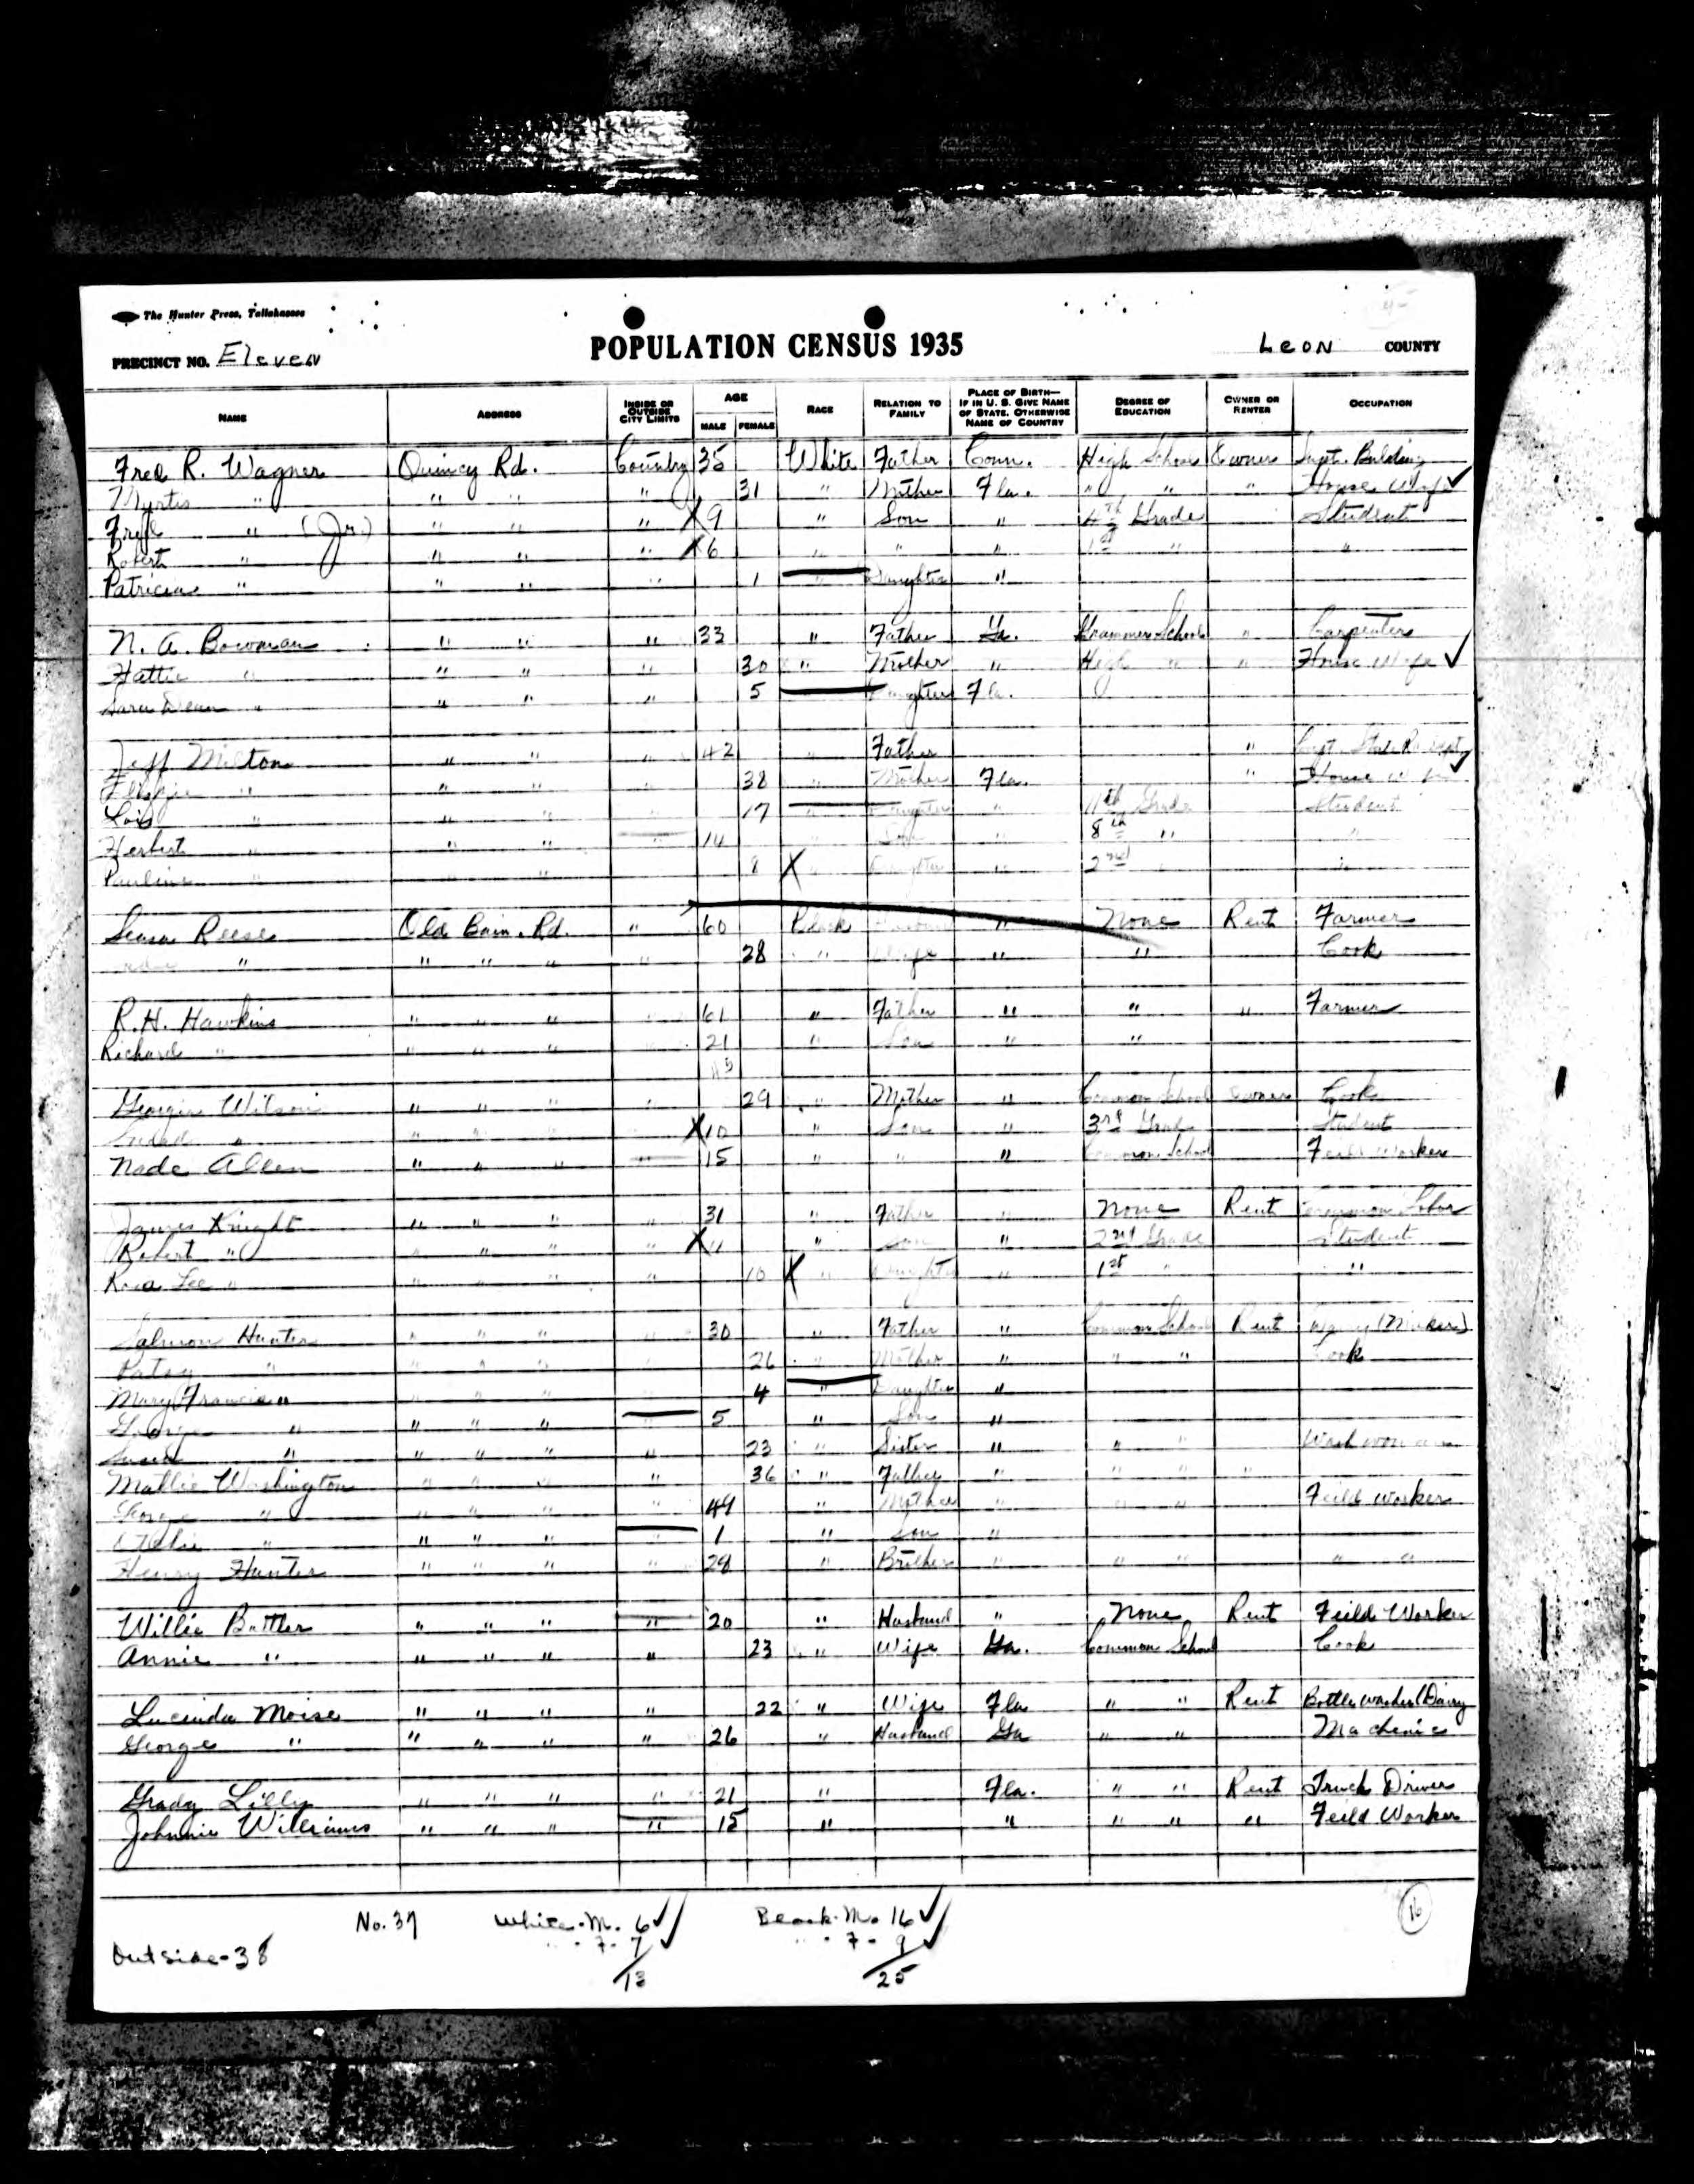 The Hunter Press, Tallahassee
PRECINCT NO. Eleven POPULATION CENSUS 1935 Leon COUNTY
NAME ADDRESS INSIDE OR OUTSIDE CITY LIMITS AGE MALE FEMALE RACE RELATION TO FAMILY PLACE OF BIRTH—IF IN U. S. GIVE NAME OF STATE. OTHERWISE NAME OF COUNTRY DEGREE OF EDUCATION OWNER OR RENTER OCCUPATION
Fred R. Wagner Quincy Rd. Country 35 White Father Conn. High School Owner Supt. Building
Myrtis " " " " 31 " Mother Fla. " " " House Wife ✓
Fred " (Jr.) " " " X 9 " Son " 4th Grade Student
Robert " " " " X 6 " " " 1st " "
Patricia " " " " 1 " Daughter "
N. A. Bowman " " " 33 " Father Ga. Grammer School " Carpenter
Hattie " " " " 30 " Mother " High " " House Wife ✓
" " " " 5 Daughter Fla.
Jeff Milton " " " 42 " Father "
" " " " 38 " Mother Fla. " House Wife ✓
Lois " " " 17 " Daughter " 11th Grade Student
Herbert " " " " 14 " Son " 8th " "
Pauline " " " 8 X " Daughter " 2nd " "
Reese Old Bain. Rd. " 60 Black " None Rent Farmer
" " " " " 28 " Wife " " Cook
R.H. Hawkins " " " " 61 " Father " " " Farmer
Richard " " " " " 21 " Son " "
Georgia Wilson " " " " 29 " Mother " Common School Owner Cook
" " " " X 10 " Son " 3rd Grade Student
Nade Allen " " " " 15 " " " Common School Feild Worker
James Knight " " " " 31 " Father " None Rent Common Labor
Robert " " " " " X 11 " Son " 2nd Grade Student
Lee " " " " " 10 X " Daughter " 1st " "
Salmon Hunter " " " " 30 " Father " Common School Rent
Patsy " " " " " 26 " Mother " " " Cook
Mary Francis " " " " 4 " Daughter "
George " " " " " 5 " Son "
" " " " " 23 " Sister " " " Wash woman
Mattie Washington " " " " 36 " Father " " " "
George " " " " " 49 " Mother " " " Feild Worker
" " " " " 1 " Son "
Henry Hunter " " " " 29 " Brother " " " " "
Willie Buttler " " " " 20 " Husband " None Rent Feild Worker
Annie " " " " " 23 " Wife Ga. Common School Cook
Lucinda Moise " " " " 22 " Wife Fla " " Rent Bottle washer (Dairy
George " " " " " 26 " Husband Ga " " Machenic
Grady Lilly " " " " 21 " Fla. " " Rent Truck Driver
Johnnie Williams " " " " 15 " " " " " Feild Worker
No. 37 White-M. 6 ✓ Black-M. 16 ✓ 16
Outside-38 " F- 7 ✓ " F- 9 ✓
13 25